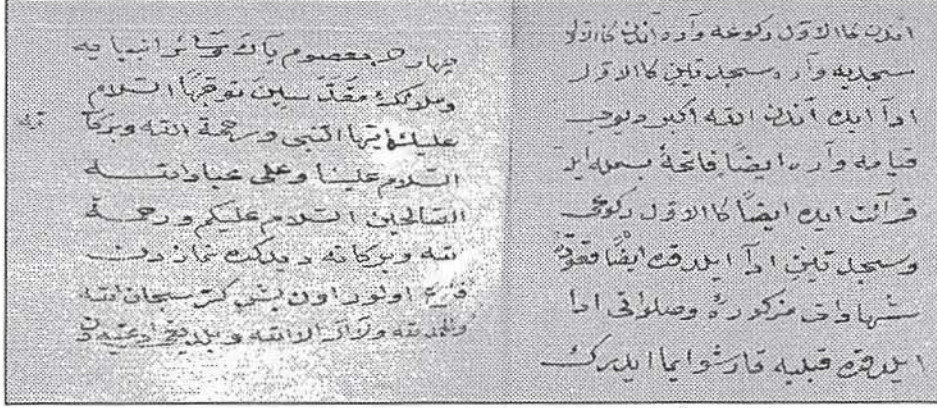 اندن كما الاول ركوعه وارد اندن كا الاول
سجديه وارد سجدتين كا الاول
ادا ايدن اندن الله أكبر ديوب
قيامه وارد ايضًا فاتحهٔ بسمله ايله
قرائت ايدن ايضًا كا الاول ركوعى
وسجدتين ادا ايلدقده ايضًا قعود
شهادات مذكورهٔ وصلواتى ادا
ايلدقده قبليه قارشو ايما ايدرك
چهارده معصوم پاك وسائر انبيايه
وملائكهٔ مقدسين متوجهًا السلام
عليك ايها النبى ورحمة الله وبركاته
السلام علينا وعلى عباد الله
الصالحين السلام عليكم ورحمة
الله وبركاته ديدكده نمازدن
فارغ اولور اون بش كره سبحان الله
والحمد لله ولا اله الا الله